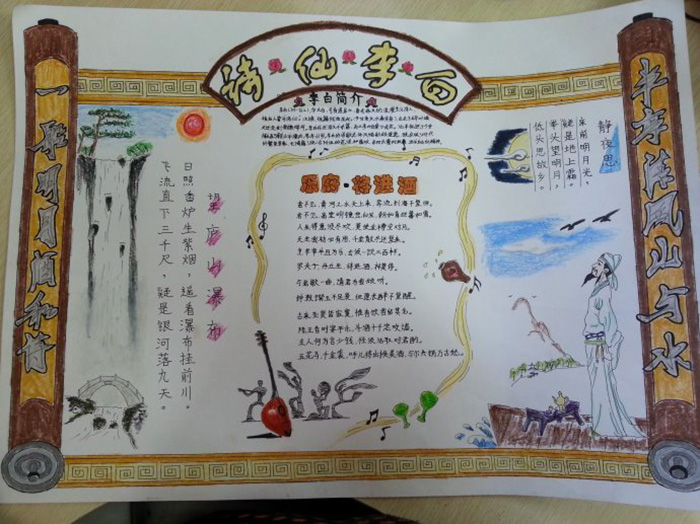 诗仙李白
李白简介
一壶明月酒和诗
半亭清风山与水
望庐山瀑布
日照香炉生紫烟，遥看瀑布挂前川。
飞流直下三千尺，疑是银河落九天。
静夜思
床前明月光，
疑是地上霜。
举头望明月，
低头思故乡。
乐府·将进酒
君不见，黄河之水天上来，奔流到海不复回。
君不见，高堂明镜悲白发，朝如青丝暮成雪。
人生得意须尽欢，莫使金樽空对月。
天生我材必有用，千金散尽还复来。
烹羊宰牛且为乐，会须一饮三百杯。
岑夫子，丹丘生，将进酒，杯莫停。
与君歌一曲，请君为我倾耳听。
钟鼓馔玉不足贵，但愿长醉不复醒。
古来圣贤皆寂寞，惟有饮者留其名。
陈王昔时宴平乐，斗酒十千恣欢谑。
主人何为言少钱，径须沽取对君酌。
五花马，千金裘，呼儿将出换美酒，与尔同销万古愁。